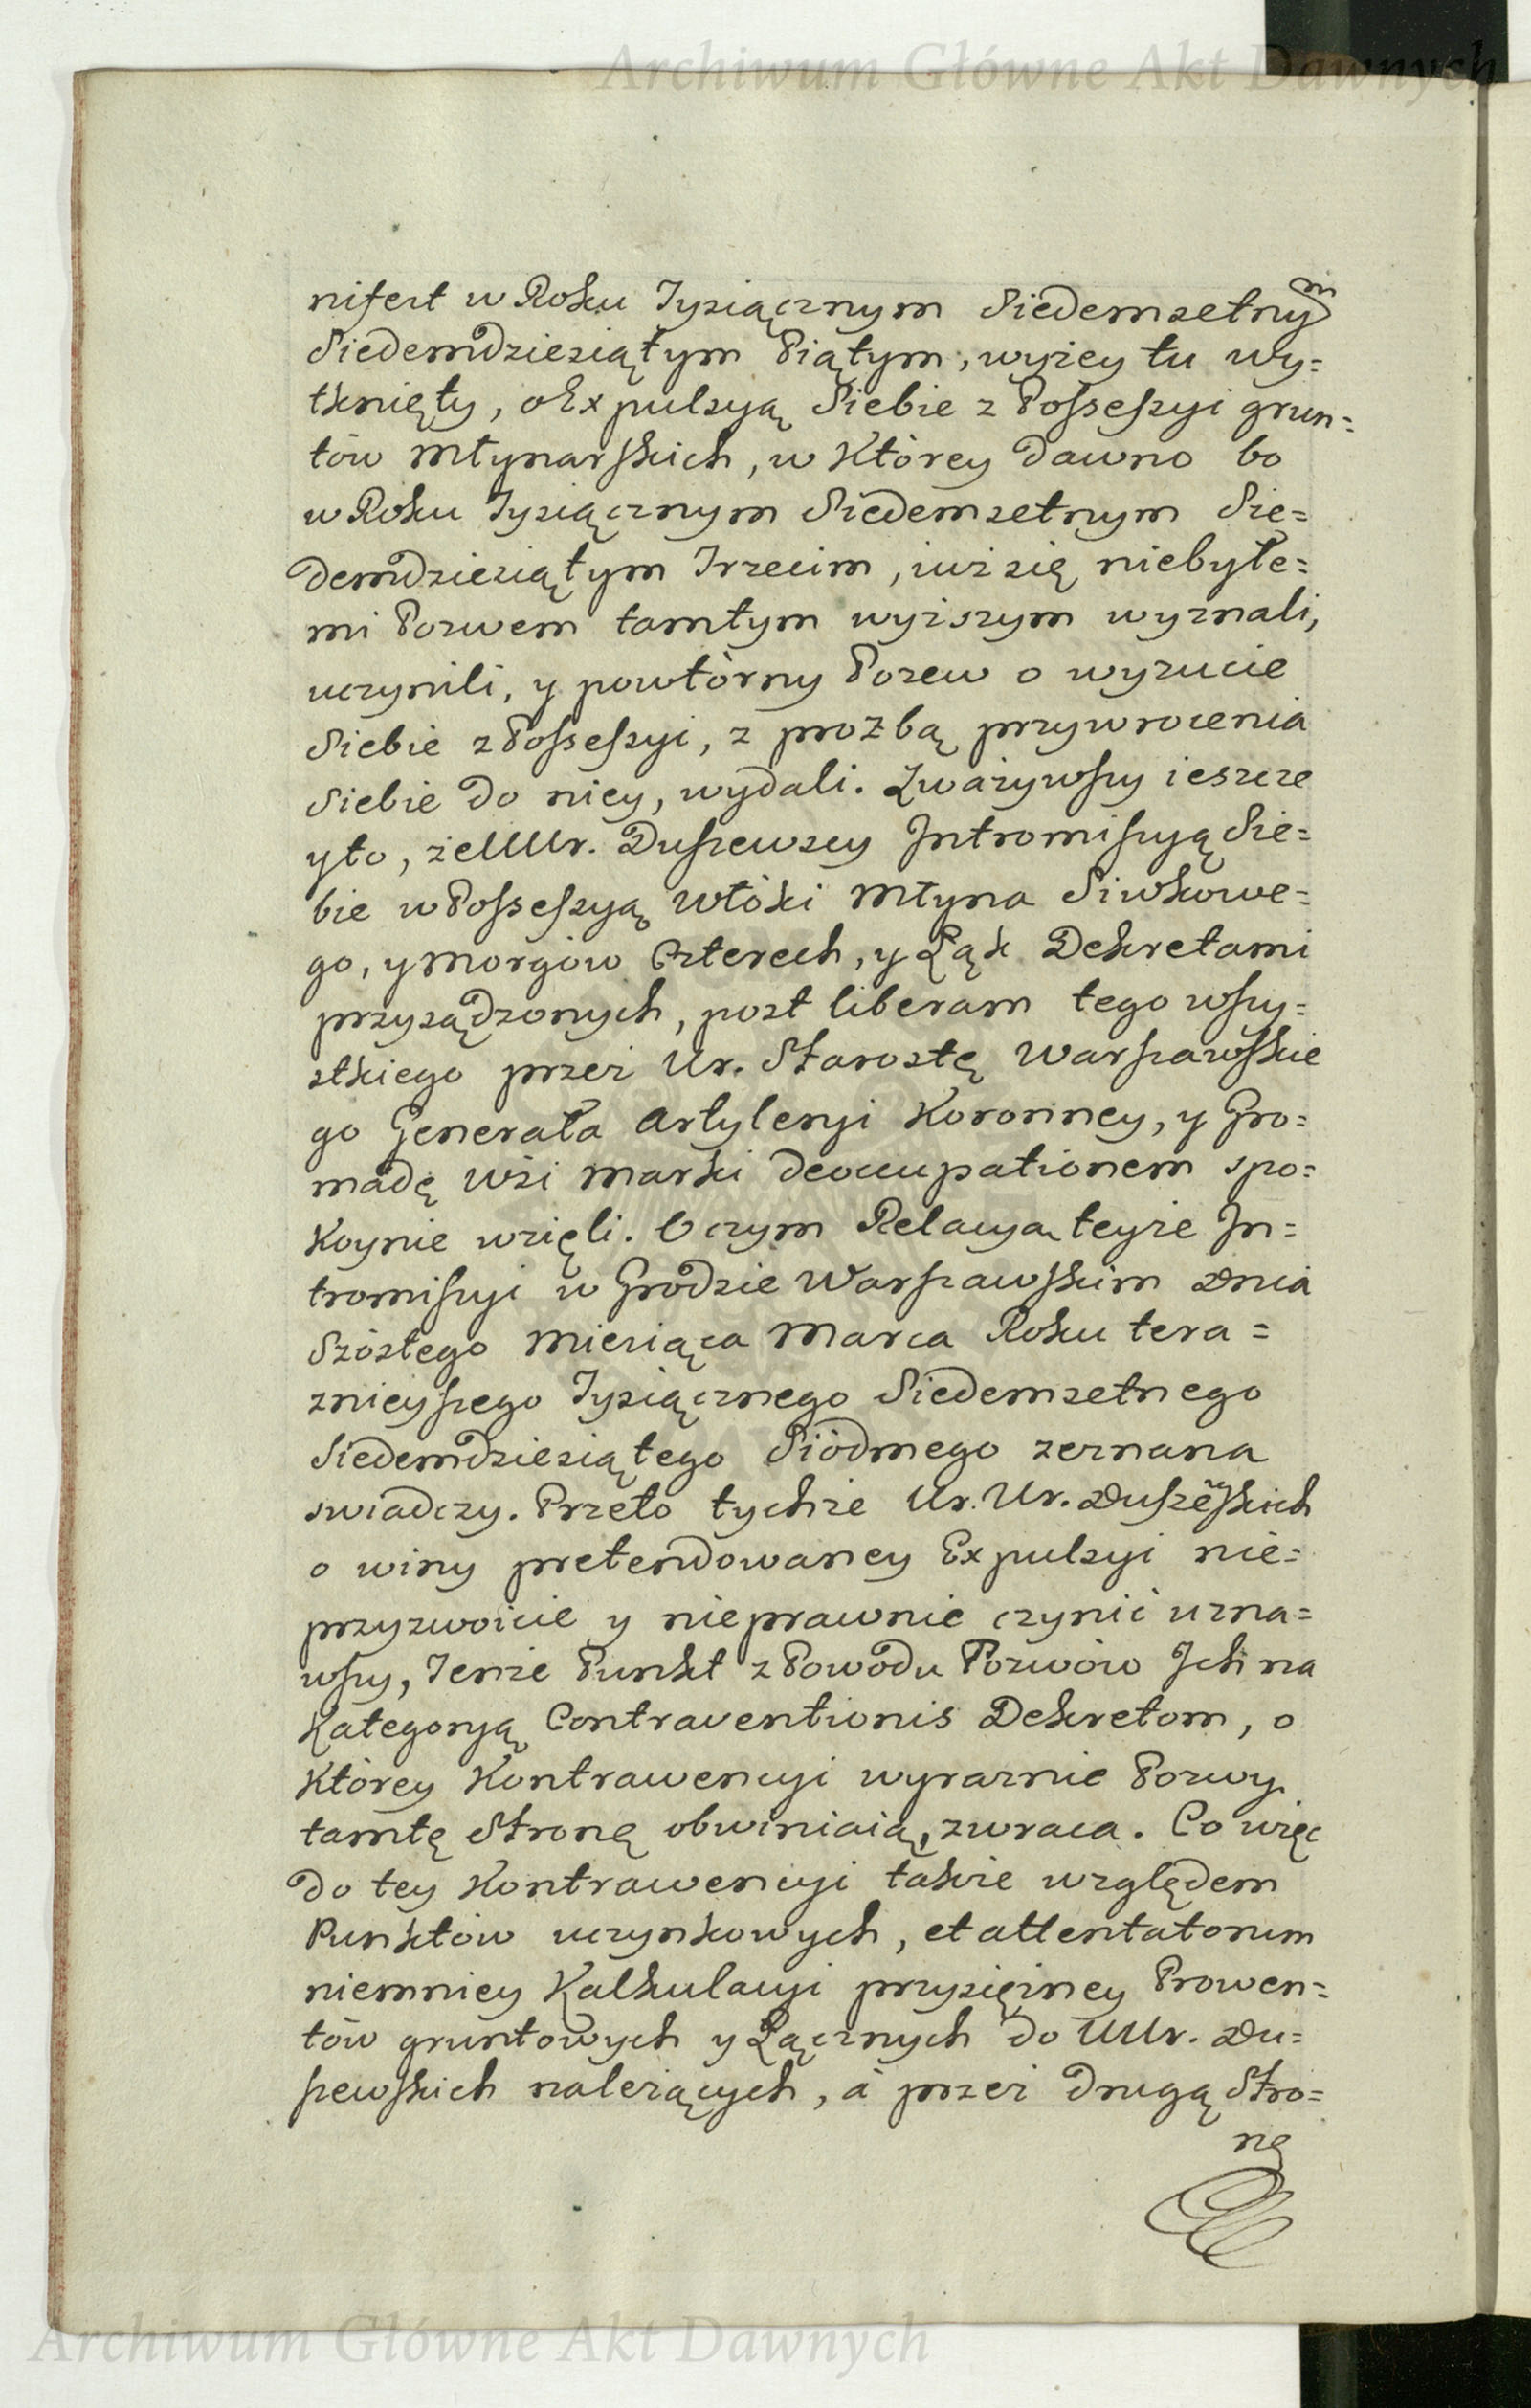 Archiwum Główne Akt Dawnych
nifest w Roku Tysiącznym Siedemsetnym
Siedemdziesiątym Piątym, wyżey tu wy=
tknięty, o Expulsyą Siebie z Possessyi grun=
tów Młynarskich, w Którey dawno bo
w Roku Tysiącznym Siedemsetnym Sie=
demdziesiątym Trzecim, iuż się niebyłe=
mi Pozwem tamtym wyższym wyznali,
uczynili, y powtórny Pozew o wyzucie
Siebie z Possessyi, z proźbą przywrocenia
Siebie do niey, wydali. Zważywszy ieszcze
y to, że UUr. Duszewscy Intromissyą Sie=
bie w Possessyą Włóki Młyna Siwkowe=
go, y Morgów Czterech, y Łąk Dekretami
przysądzonych, post liberam tego wszy=
stkiego przez Ur. Starostę Warszawskie
go Generała Artyleryi Koronney, y Gro=
madę Wsi Marki deoccupationem spo=
koynie wzięli. O czym Relacya teyże In=
tromissyi w Grodzie Warszawskim Dnia
Szóstego Miesiąca Marca Roku tera=
znieyszego Tysiącznego Siedemsetnego
Siedemdziesiątego Siódmego zeznana
swiadczy. Przeto tychże Ur. Ur. Duszewskich
o winy pretendowaney Expulsyi nie=
przyzwoicie y nieprawnie czynić uzna=
wszy, Tenże Punkt z Powodu Pozwów Ich na
Kategoryą Contraventionis Dekretom, o
Którey Kontrawencyi wyraznie Pozwy
tamtę Stronę obwiniaią, zwraca. Co więc
do tey Kontrawencyi także względem
Punktów uczynkowych, et attentatorum
niemniey Kalkulacyi przysiężney Prowen=
tów gruntowych y Łącznych do UUr. Du=
szewskich należących, á przez drugą Stro=
nę
Archiwum Główne Akt Dawnych